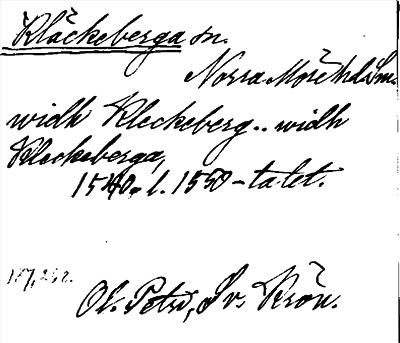 Kläckeberga sn.
Norra Möre hd Sm.
widh Kleckeberg.. widh
Kleckeberga,
1540- l. 1550-talet.
Ol. Petri, Sv. Krön.